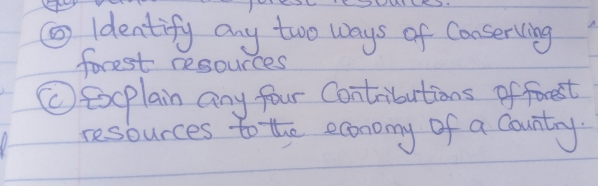 (b) Identify any two ways of Conserving
forest resources
(c) Explain any four Contributions of forest
resources to the economy of a Country.